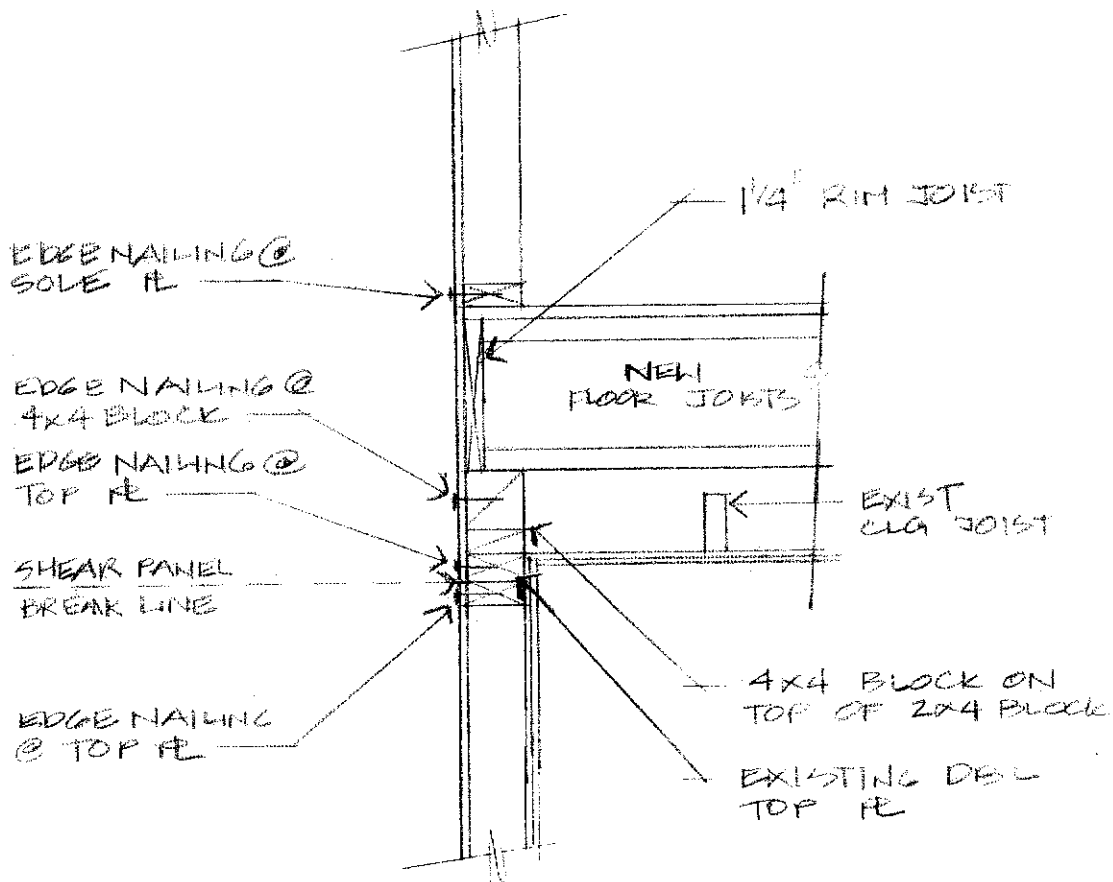 1 1/4" RIM JOIST
EDGE NAILING @
SOLE PL
NEW
FLOOR JOISTS
EDGE NAILING @
4x4 BLOCK
EDGE NAILING @
TOP PL
EXIST
CLG JOIST
SHEAR PANEL
BREAK LINE
4x4 BLOCK ON
TOP OF 2x4 BLOCK
EDGE NAILING
@ TOP PL
EXISTING DBL
TOP PL